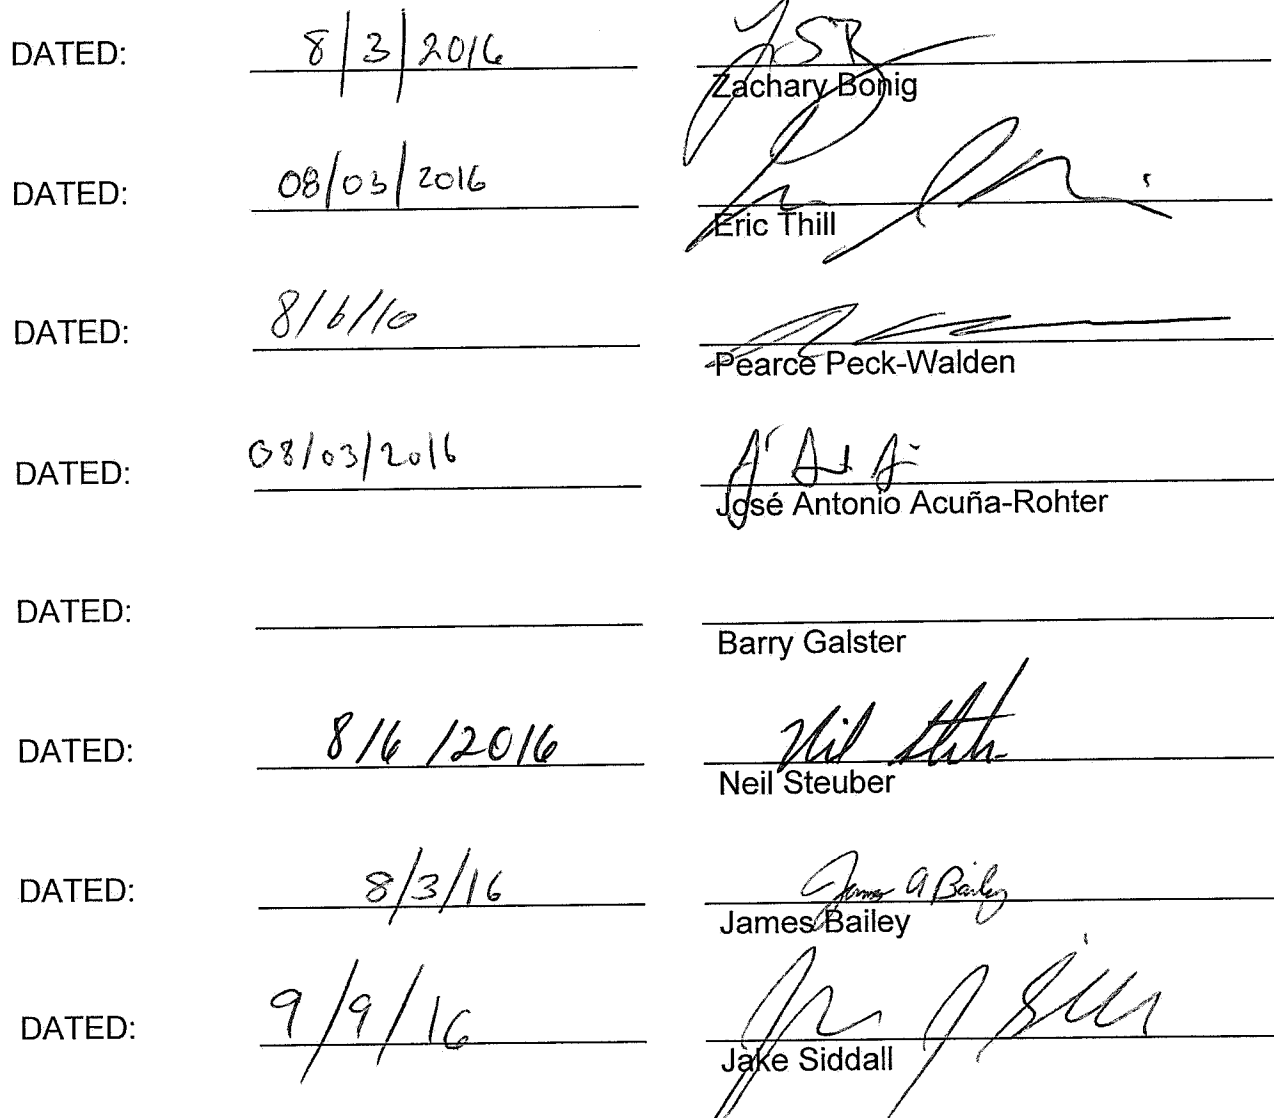 DATED: 8/3/2016
Zachary Bonig
DATED: 08/03/2016
Eric Thill
DATED: 8/6/16
Pearce Peck-Walden
DATED: 08/03/2016
José Antonio Acuña-Rohter
DATED:
Barry Galster
DATED: 8/6/2016 Neil Steuber
Neil Steuber
DATED: 8/3/16 James A Bailey
James Bailey
DATED: 9/9/16
Jake Siddall